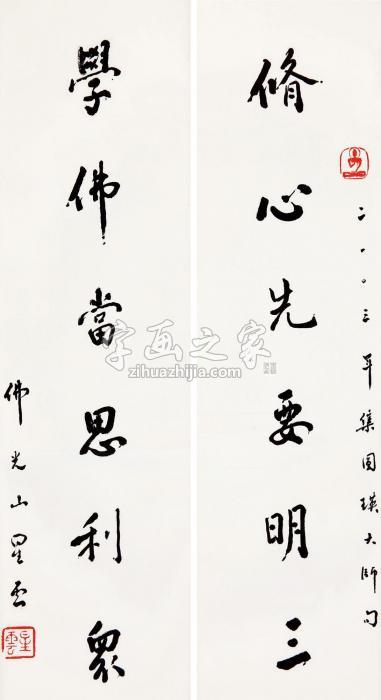 脩心先要明三
二〇〇三年集圓瑛大師句
學佛當思利眾
佛光山星雲
星雲
字画之家
zihuazhijia.com